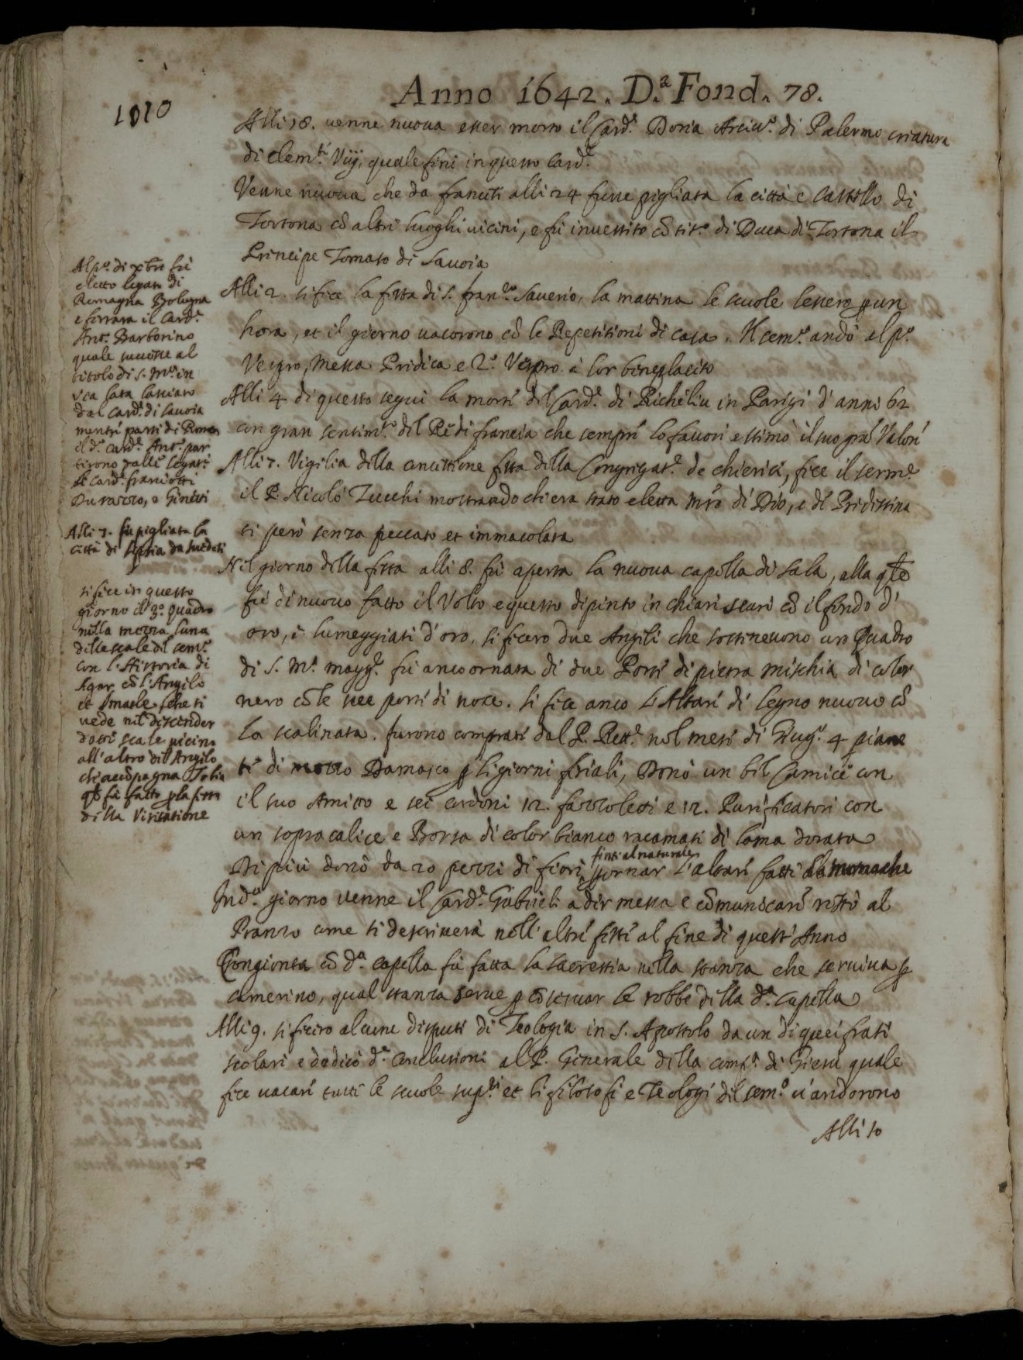 1010
Anno 1642. D.ª Fond. 78.
Alli 18. venne nuova esser morto il Card.e Doria Arciv.o di Palermo criatura
di Clem.te Viij, quale finì in questo Card.e
Venne nuova che da francesi alli 24 fusse pigliata la città e castello di
Tortona cō altri luoghi vicini, e fù investito cō tit.o di Duca di Tortona il
Principe Tomaso di Savoia
Alli 2. si fece la festa di S. Fran.co Saverio, la mattina le scuole lessero p un
hora, et il giorno vacorono cō le Repetitioni di casa. Il sem.o andò al p.o
Vespro, Messa Predica e 2.o Vespro à lor beneplacito
Alli 4 di questo seguì la morte del Card.e di Richeliu in Parigi d'anni 62
con gran sentim.to del Rè di francia che sempre lo favorì e stimò il suo gra Valore
Alli 7. Vigilia della concettione festa della Congregat.e de chierici, fece il serm.e
il P. Nicolò Zucchi mostrando chi era stato eletta Mr̄e di Dio, e di Predestina
ti però senza peccato et immacolata
Nel giorno della festa alli 8. fù aperta la nuova capella di sala, alla qle
fù di nuovo fatto il Volto e questo dipinto in chiari scuri cō il fondo d'
oro, e lumeggiati d'oro, si fecero due Angeli che sostinevono un Quadro
di S. M.a magg.e fù anco ornata di due Porte di pietra mischia di color
nero cō le sue porte di noce. Si fece anco l'Altare di legno nuovo cō
la scalinata. furono comprati dal P. Rett.e nel mese di Giug.o 4 piane
te di mezzo Damasco p li giorni feriali, Donò un bel Camice con
il suo Amitto e sei cordoni 12. fazzoletti e 12. Purificatori con
un sopracalice e Borsa di color bianco racamati di lama dorata
Di più donò da 20 pezzi di fiori finti al naturale p ornar l'altare fatti da monache
In d.o giorno venne il Card.e Gabrieli a dir messa e cōmunicare restò al
Pranzo come si descriverà nell'altre feste al fine di quest'Anno
Congionta cō d.a capella fù fatta la sacrestia nella stanza che serviva p
camerino, qual stanza serve p cōservar le robbe della d.a Capella
Alli 9. si fecero alcune dispute di Teologia in S. Apostolo da un di quei frati
scolari e dedicò d.e conclusioni al P. Generale della comp.a di Giesù quale
fece vacare tutte le scuole sup.ri et li filosofi e Teologi del sem.o vi andorono
Alli 10
Al p.o di Xbre fù
eletto legato di
Romagna Bologna
e ferrara il Card.e
Ant.o Barbarino
quale successe al
titolo di S. M.a in
Via lata lasciato
dal Card.e di Savoia
mentre partì di Roma
il d.o Card.e Ant.o par
tirono p altri legati
li Card.i franciotti
Durazzo, e Ginetti
Alli 7. fù pigliata la
città di Lipsia da Suedesi
Si fece in questo
giorno il 3.o quadro
nella mezza luna
della scale di sem.o
con l'Historia di
Agar cō l'Angelo
et Ismaele, che si
vede nel discender
dette scale vicino
all'altro dell'Angelo
che accōpagna Tobia
qle fù fatto p la festa
della Visitatione